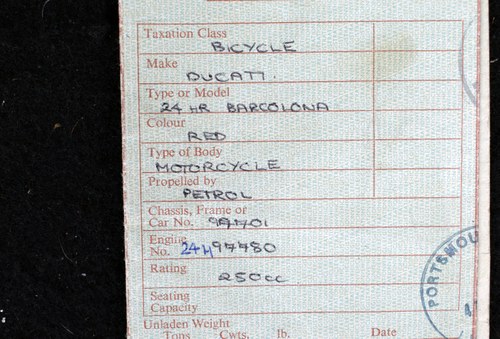 Taxation Class
BICYCLE
Make
DUCATI.
Type or Model
24 HR BARCOLONA
Colour
RED
Type of Body
MOTORCYCLE
Propelled by
PETROL
Chassis, Frame or
Car No. 99701
Engine
No. 24H97780
Rating
250cc
Seating
Capacity
Unladen Weight
Tons Cwts. lb. Date
PORTSMOU